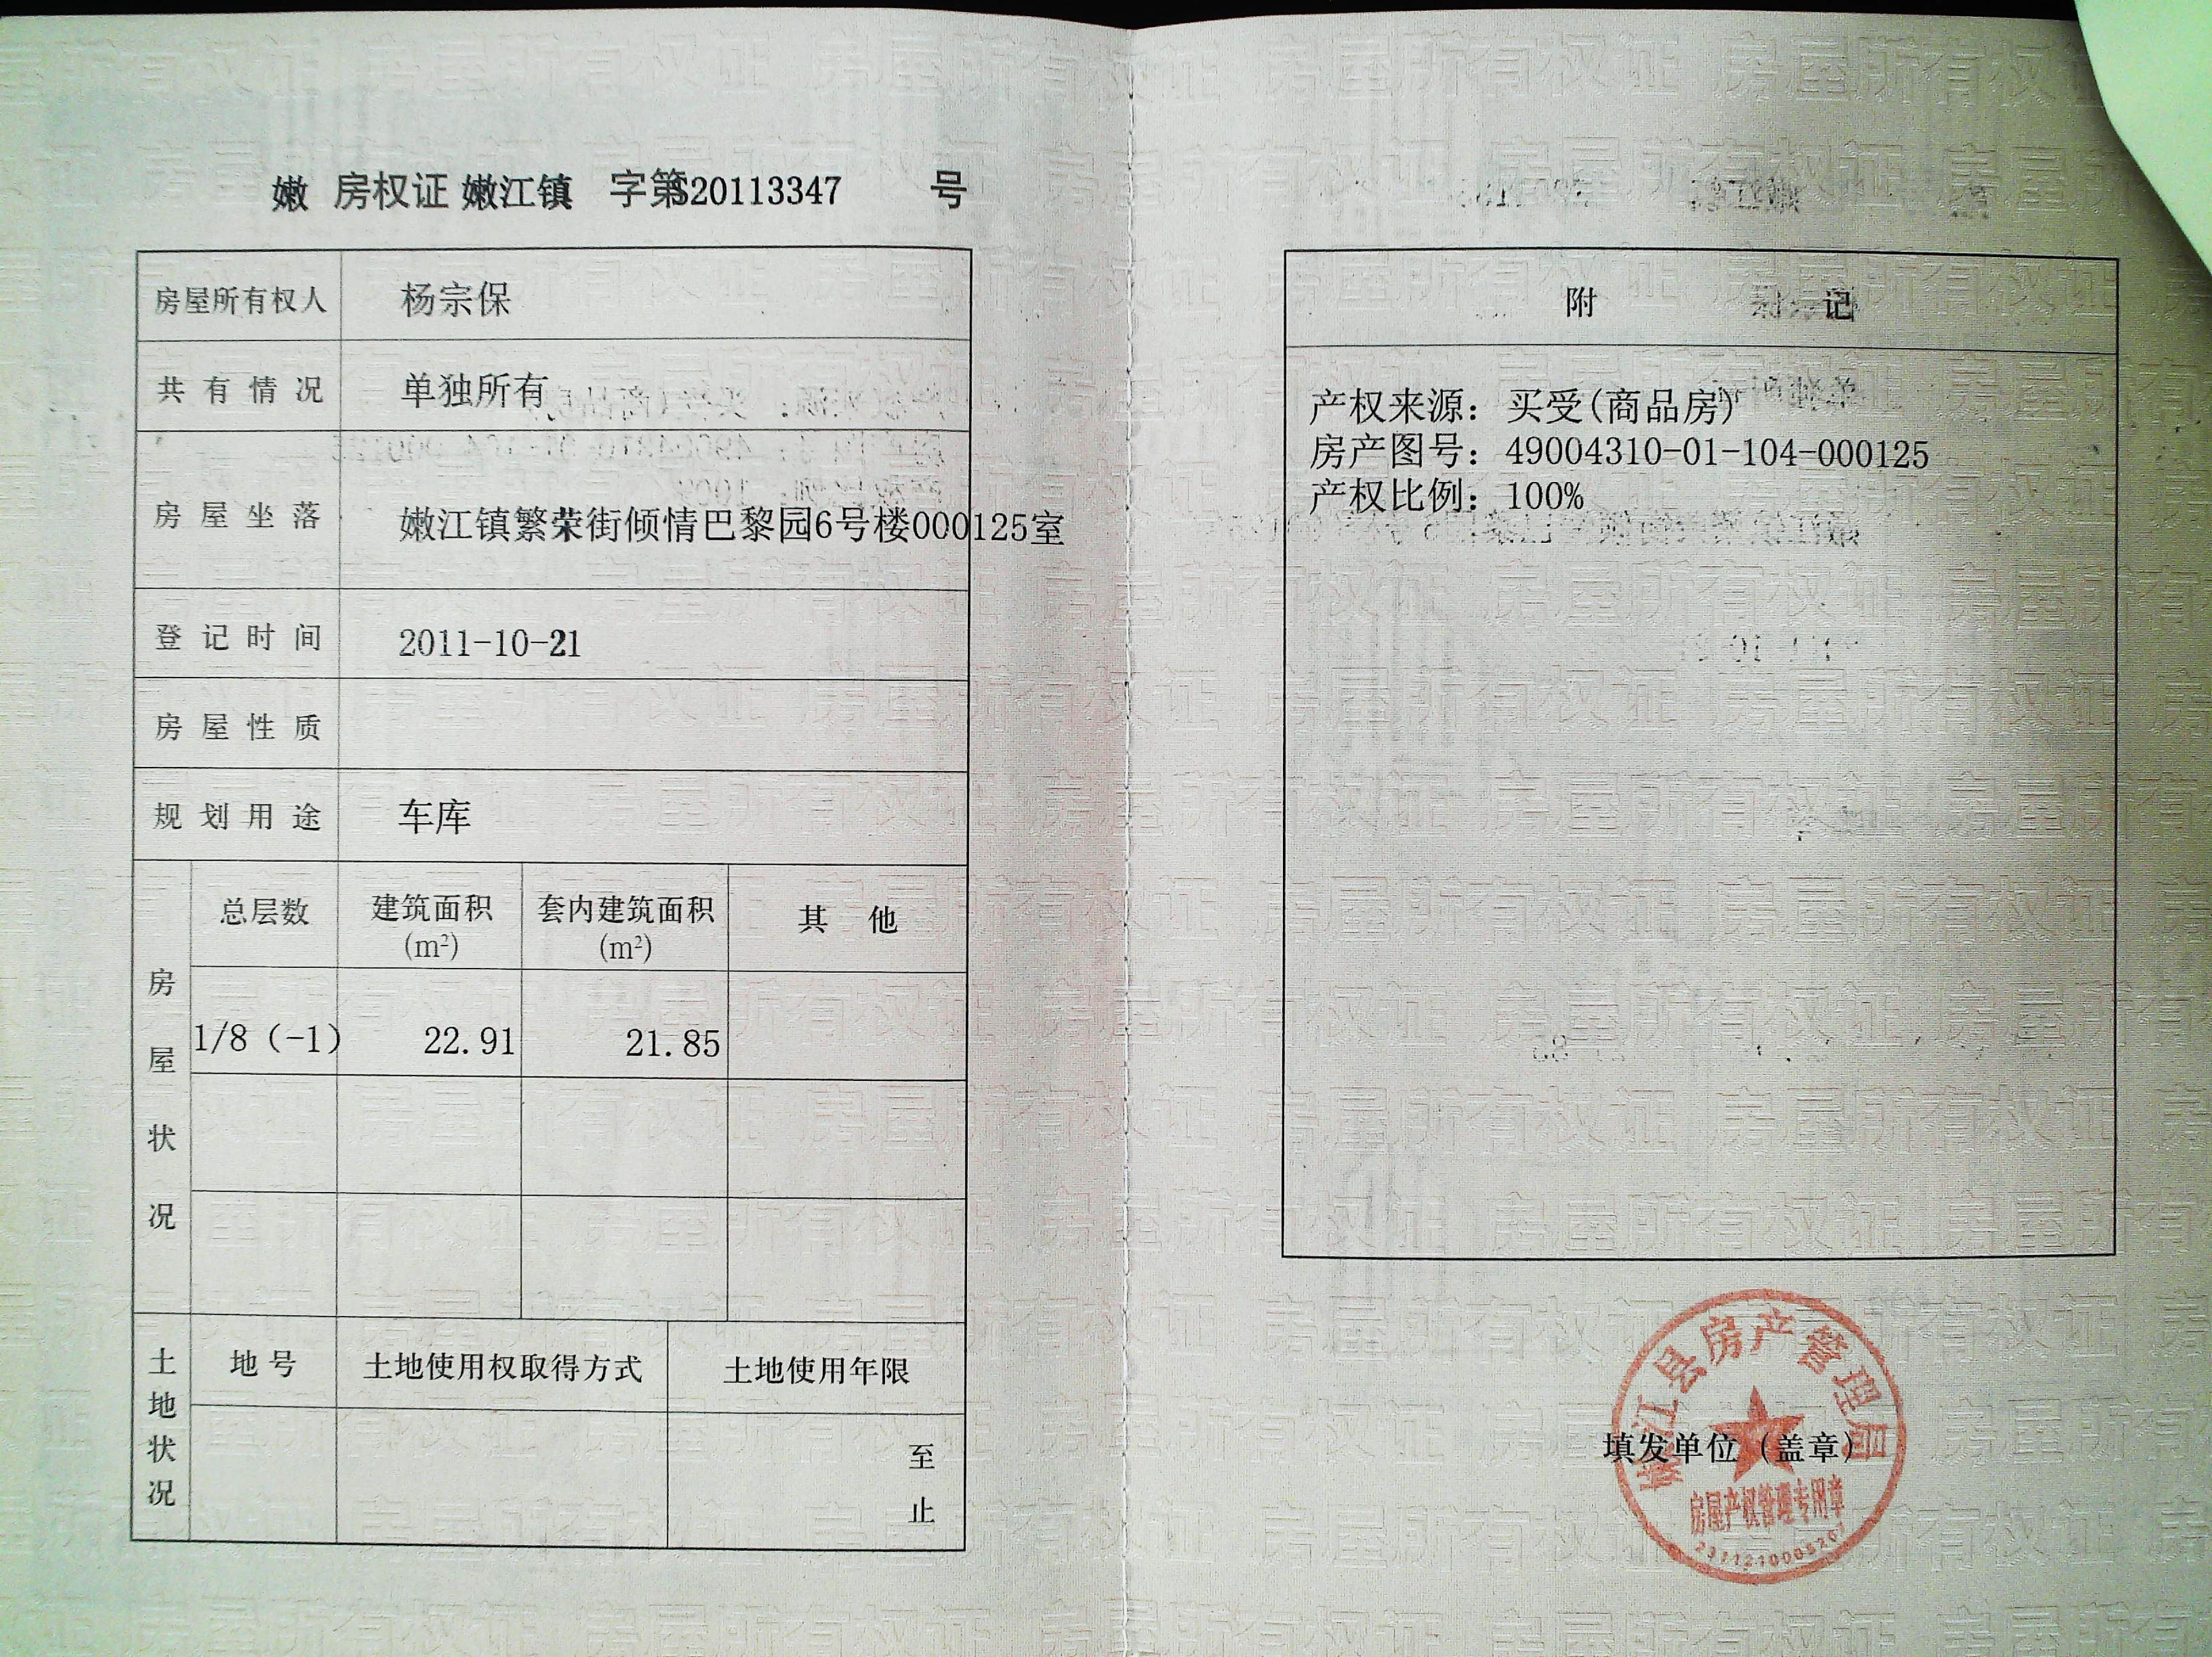 嫩 房权证 嫩江镇 字第S20113347 号
房屋所有权人 杨宗保
共有情况 单独所有
房屋坐落 嫩江镇繁荣街倾情巴黎园6号楼000125室
登记时间 2011-10-21
房屋性质
规划用途 车库
房屋状况
总层数 建筑面积(m²) 套内建筑面积(m²) 其他
1/8（-1） 22.91 21.85
土地状况
地号 土地使用权取得方式 土地使用年限
至
止
附 记
产权来源：买受(商品房)
房产图号：49004310-01-104-000125
产权比例：100%
嫩江县房产管理局
填发单位（盖章）
房屋产权管理专用章